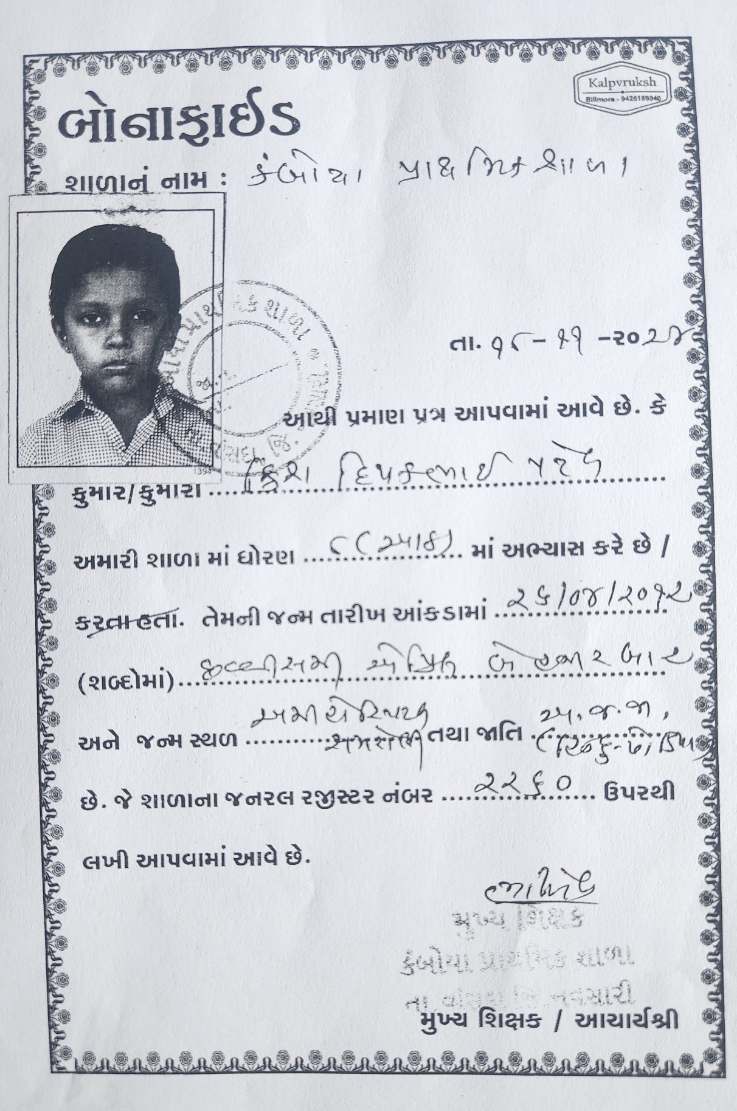 Kalpvruksh
Billimora - 9426189940
બોનાફાઈડ
શાળાનું નામ : કંબોયા પ્રાથમિક શાળા
તા. ૧૮ - ૧૧ - ૨૦૨૪
આથી પ્રમાણ પત્ર આપવામાં આવે છે. કે
કુમાર/કુમારી ક્રિશ દિપકભાઈ પટેલ
અમારી શાળા માં ધોરણ ૮ (આઠ) માં અભ્યાસ કરે છે /
કરતા હતા. તેમની જન્મ તારીખ આંકડામાં ૨૬/૦૪/૨૦૧૨
(શબ્દોમાં) છવ્વીસમી એપ્રિલ બે હજાર બાર
અને જન્મ સ્થળ તથા જાતિ અ.જ.જા,
છે. જે શાળાના જનરલ રજીસ્ટર નંબર ૨૨૬૦ ઉપરથી
લખી આપવામાં આવે છે.
મુખ્ય શિક્ષક
કંબોયા પ્રાથમિક શાળા
તા વાંસદા જિ નવસારી
મુખ્ય શિક્ષક / આચાર્યશ્રી